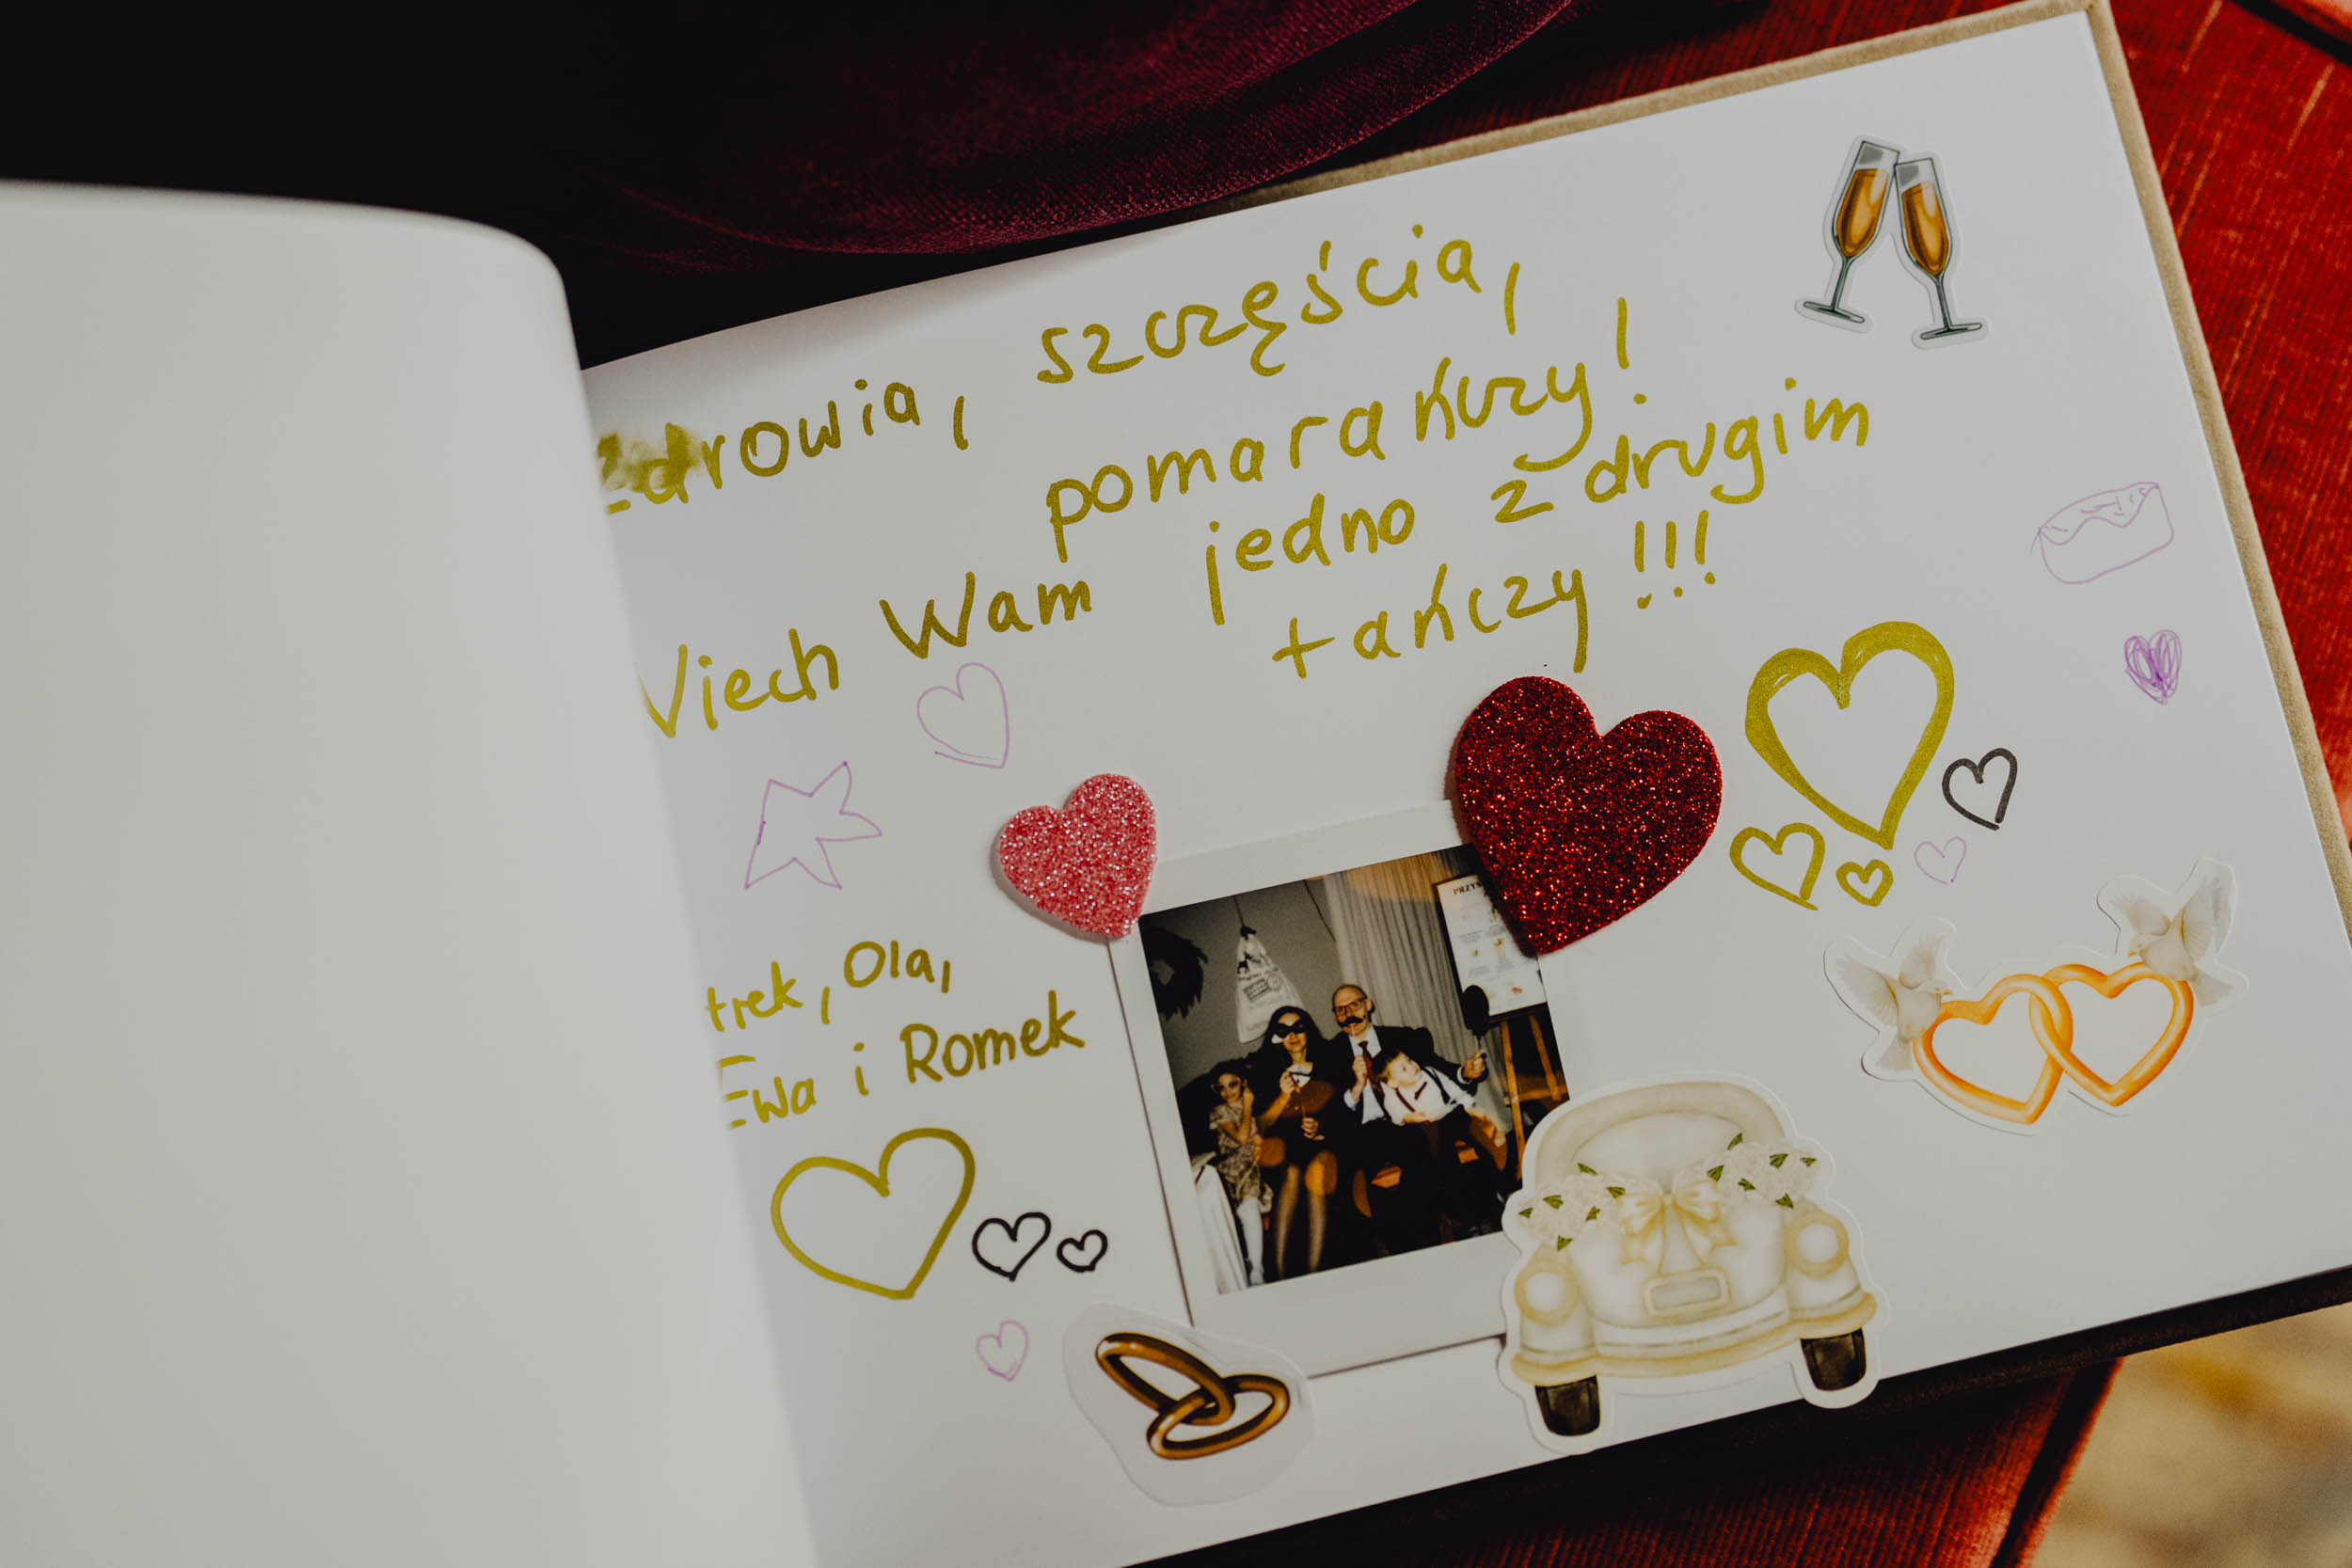 Zdrowia, szczęścia,
pomarańczy!
Niech Wam jedno z drugim
tańczy!!!
trek, Ola,
Ewa i Romek
PRZYS